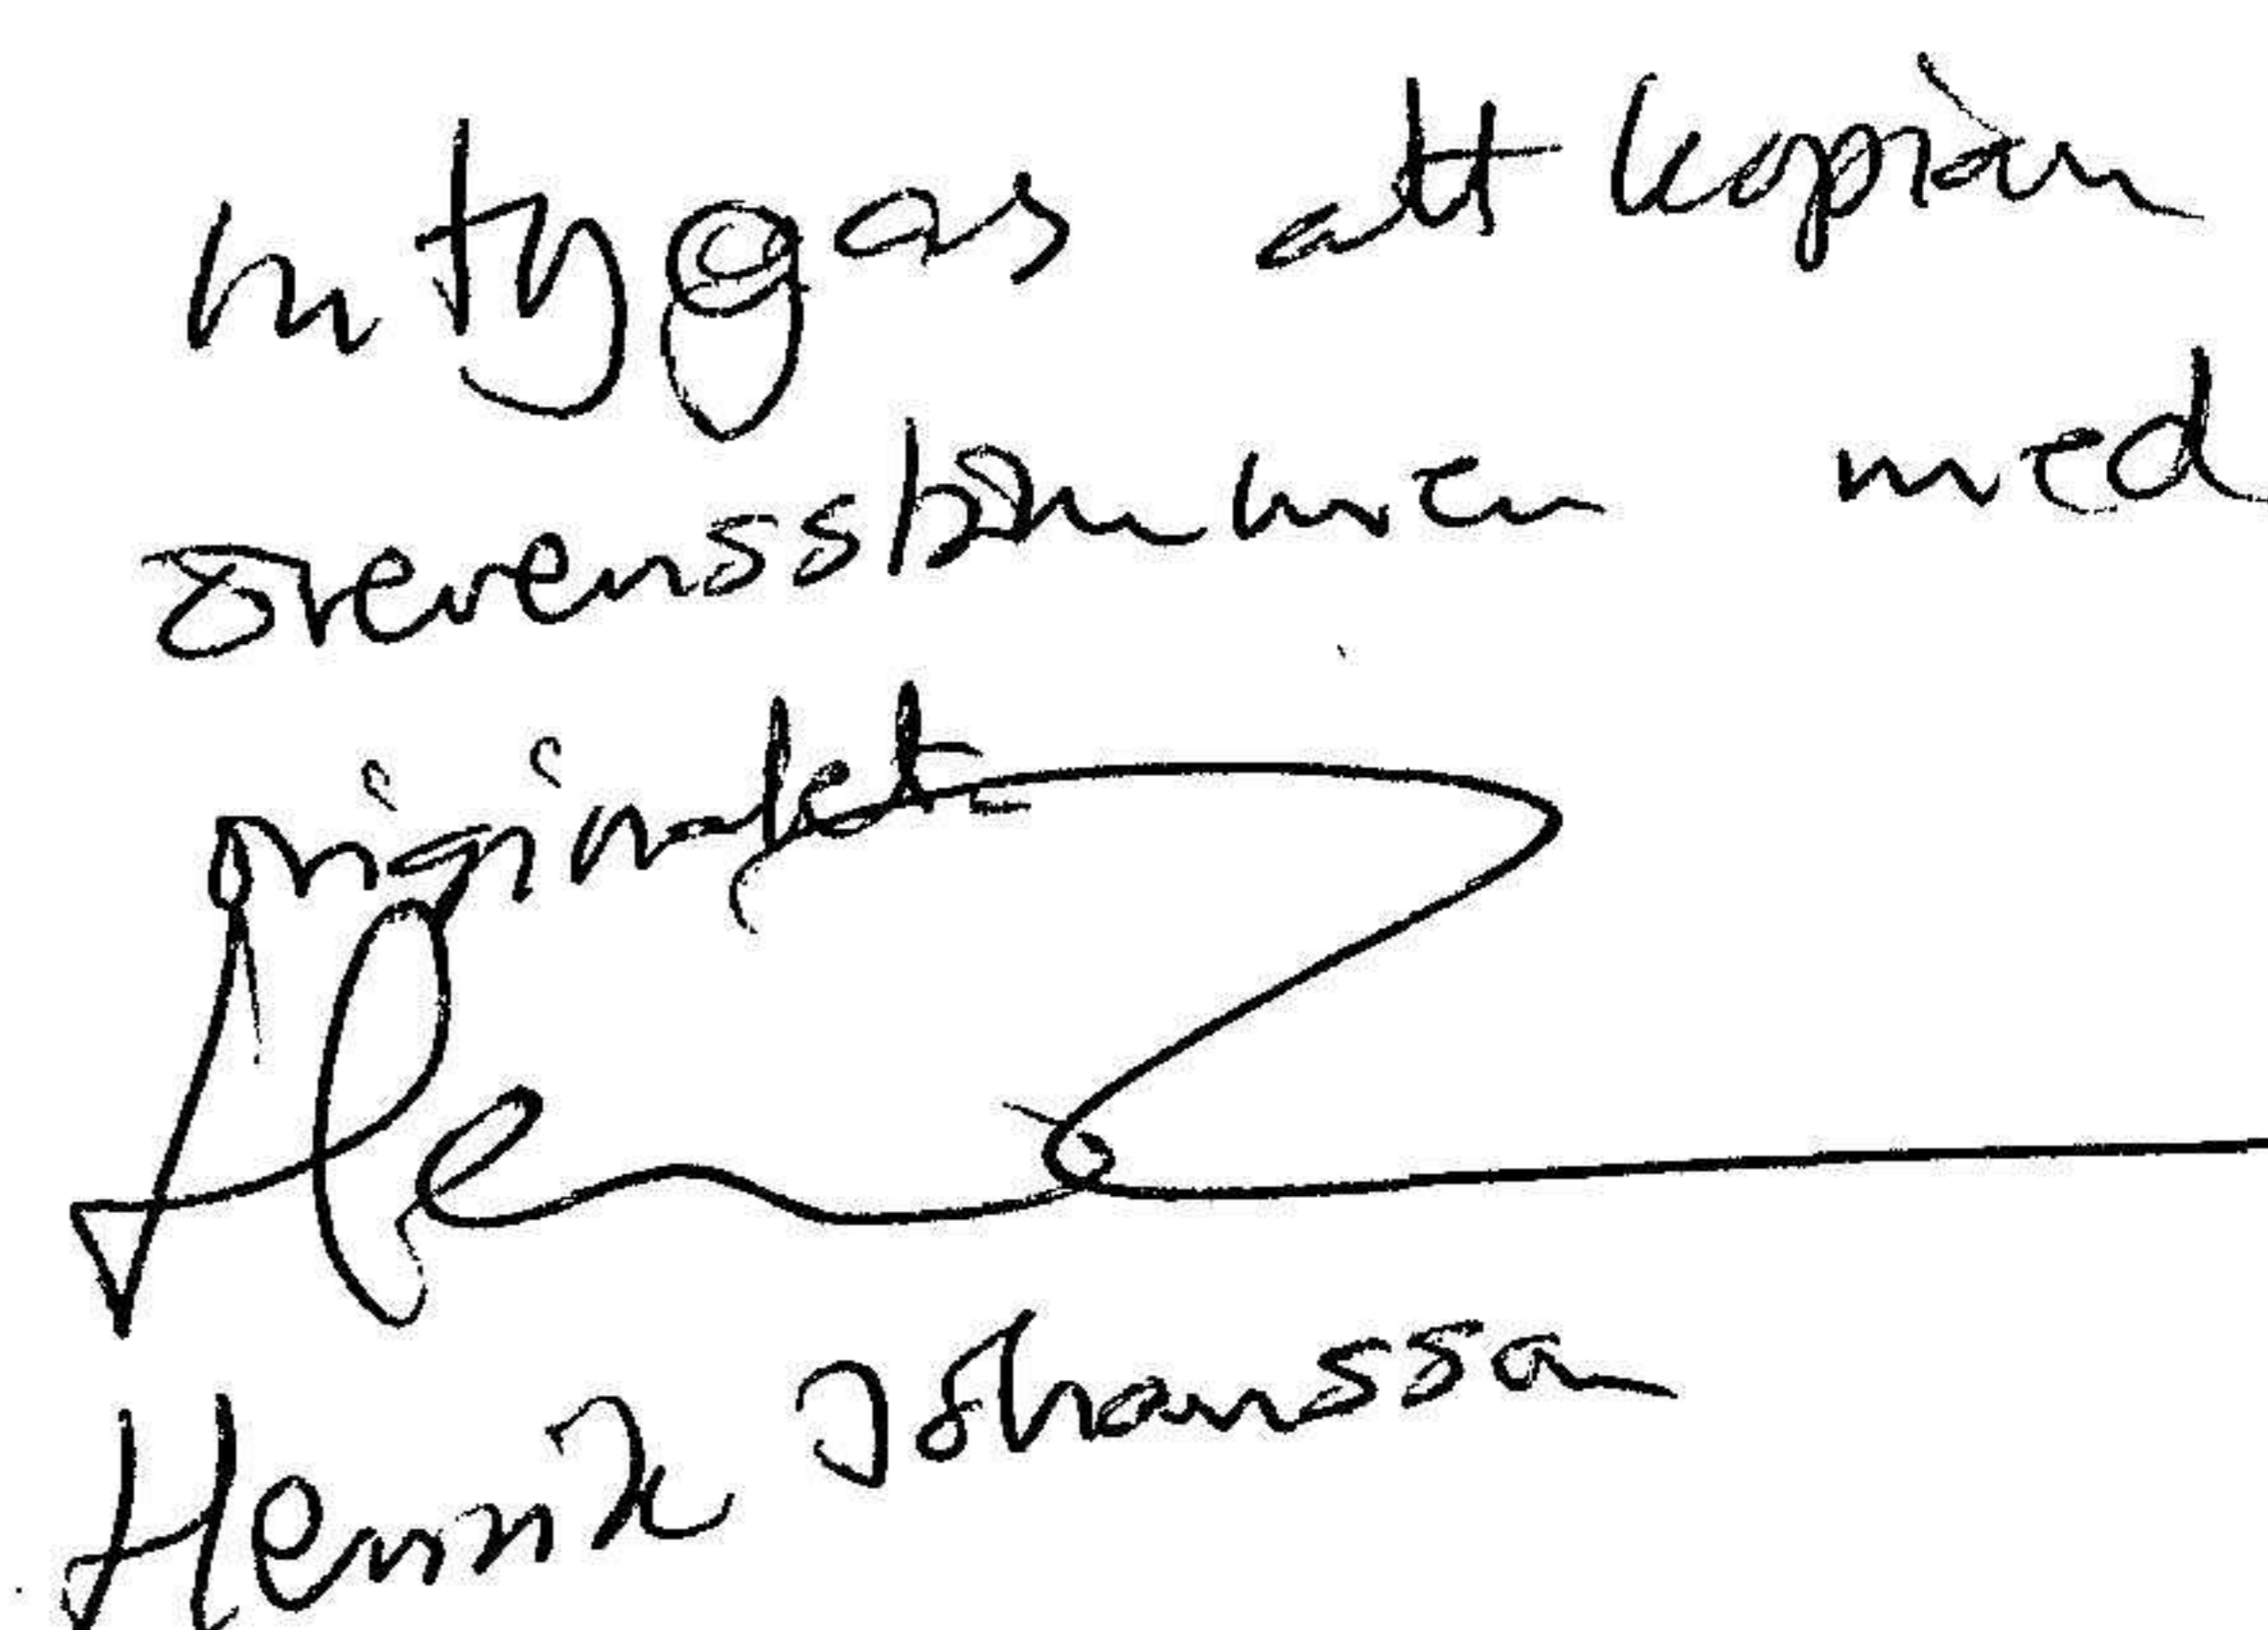 Intygas att kopian
överensstämmen med
originalet
Henrik Johansson